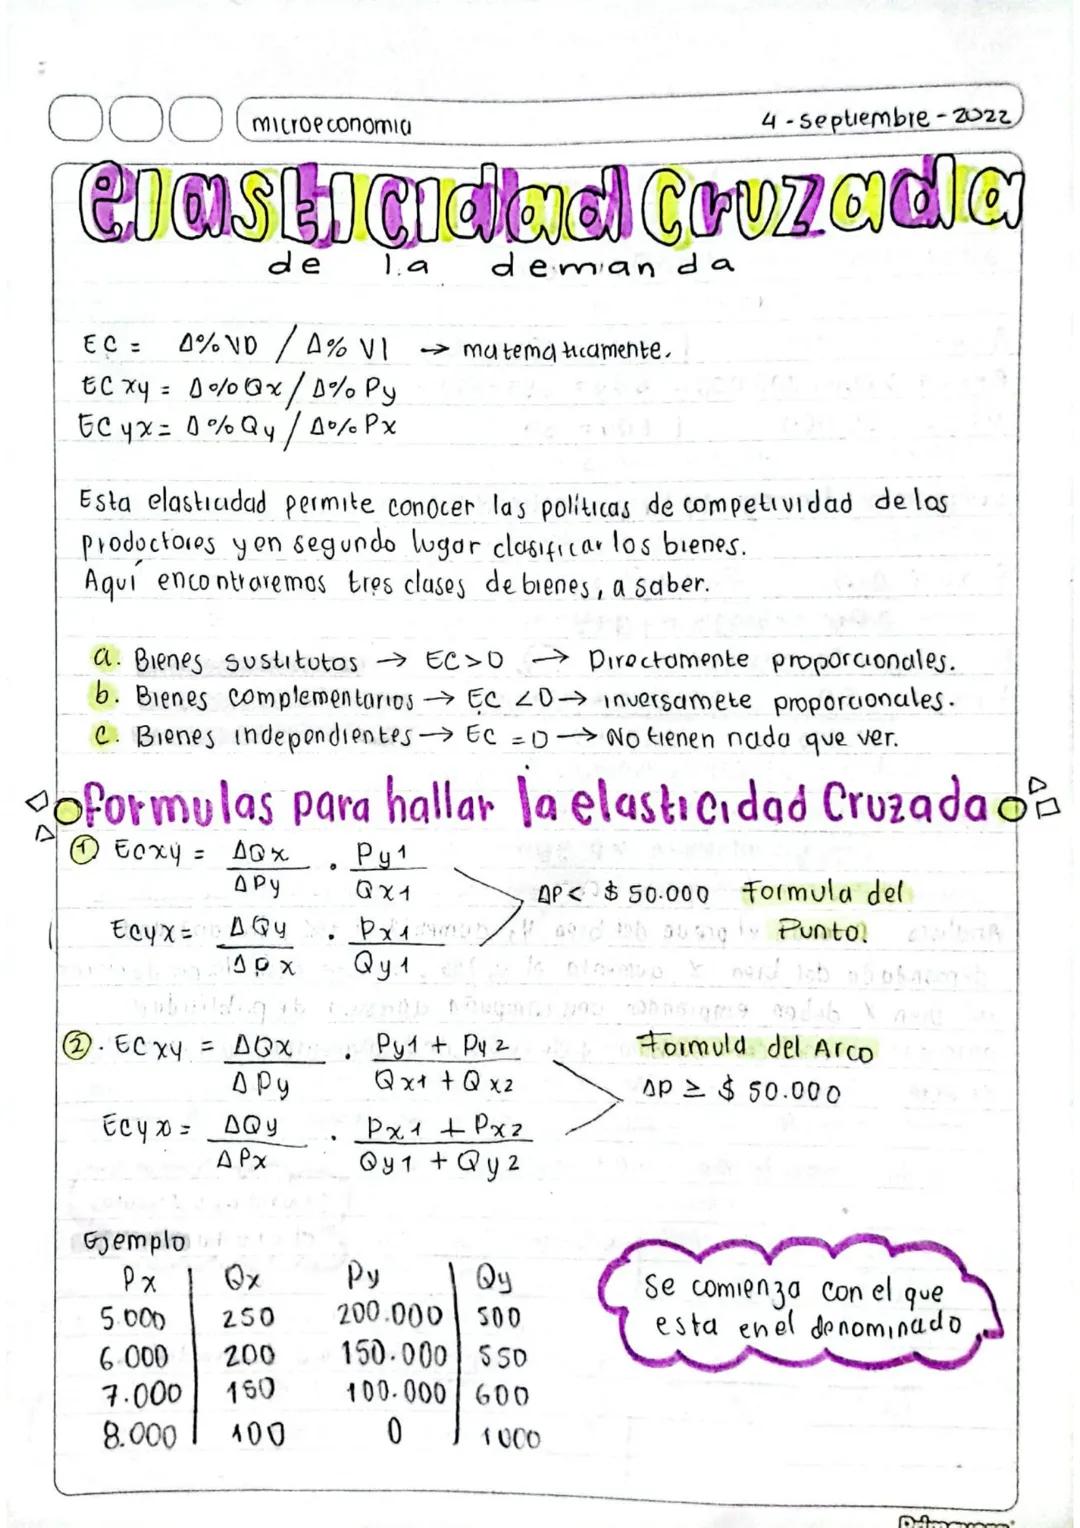 microeconomia
4-septiembre-2022
elasticidad Cruzada
de la demanda
EC = Δ% VD / Δ% VI → matematicamente.
EC xy = Δ% Qx / Δ% Py
EC yx = Δ% Qy / Δ% Px
Esta elasticidad permite conocer las políticas de competividad de los
productores y en segundo lugar clasificar los bienes.
Aquí encontraremos tres clases de bienes, a saber.
a. Bienes sustitutos → EC>0 → Directamente proporcionales.
b. Bienes complementarios → EC <0 → inversamete proporcionales.
c. Bienes independientes → EC =0 → No tienen nada que ver.
formulas para hallar la elasticidad Cruzada
① Ecxy = ΔQx / ΔPy . Py1 / Qx1
ΔP < $ 50.000 Formula del
Punto.
Ecyx = ΔQy / ΔPx . Px1 / Qy1
②. ECxy = ΔQx / ΔPy . Py1 + Py2 / Qx1 + Qx2
Formula del Arco
ΔP ≥ $ 50.000
Ecyx = ΔQy / ΔPx . Px1 + Px2 / Qy1 + Qy2
Ejemplo
Px Qx Py Qy
5.000 250 200.000 500
6.000 200 150.000 550
7.000 150 100.000 600
8.000 100 0 1000
Se comienza con el que
esta en el denominado